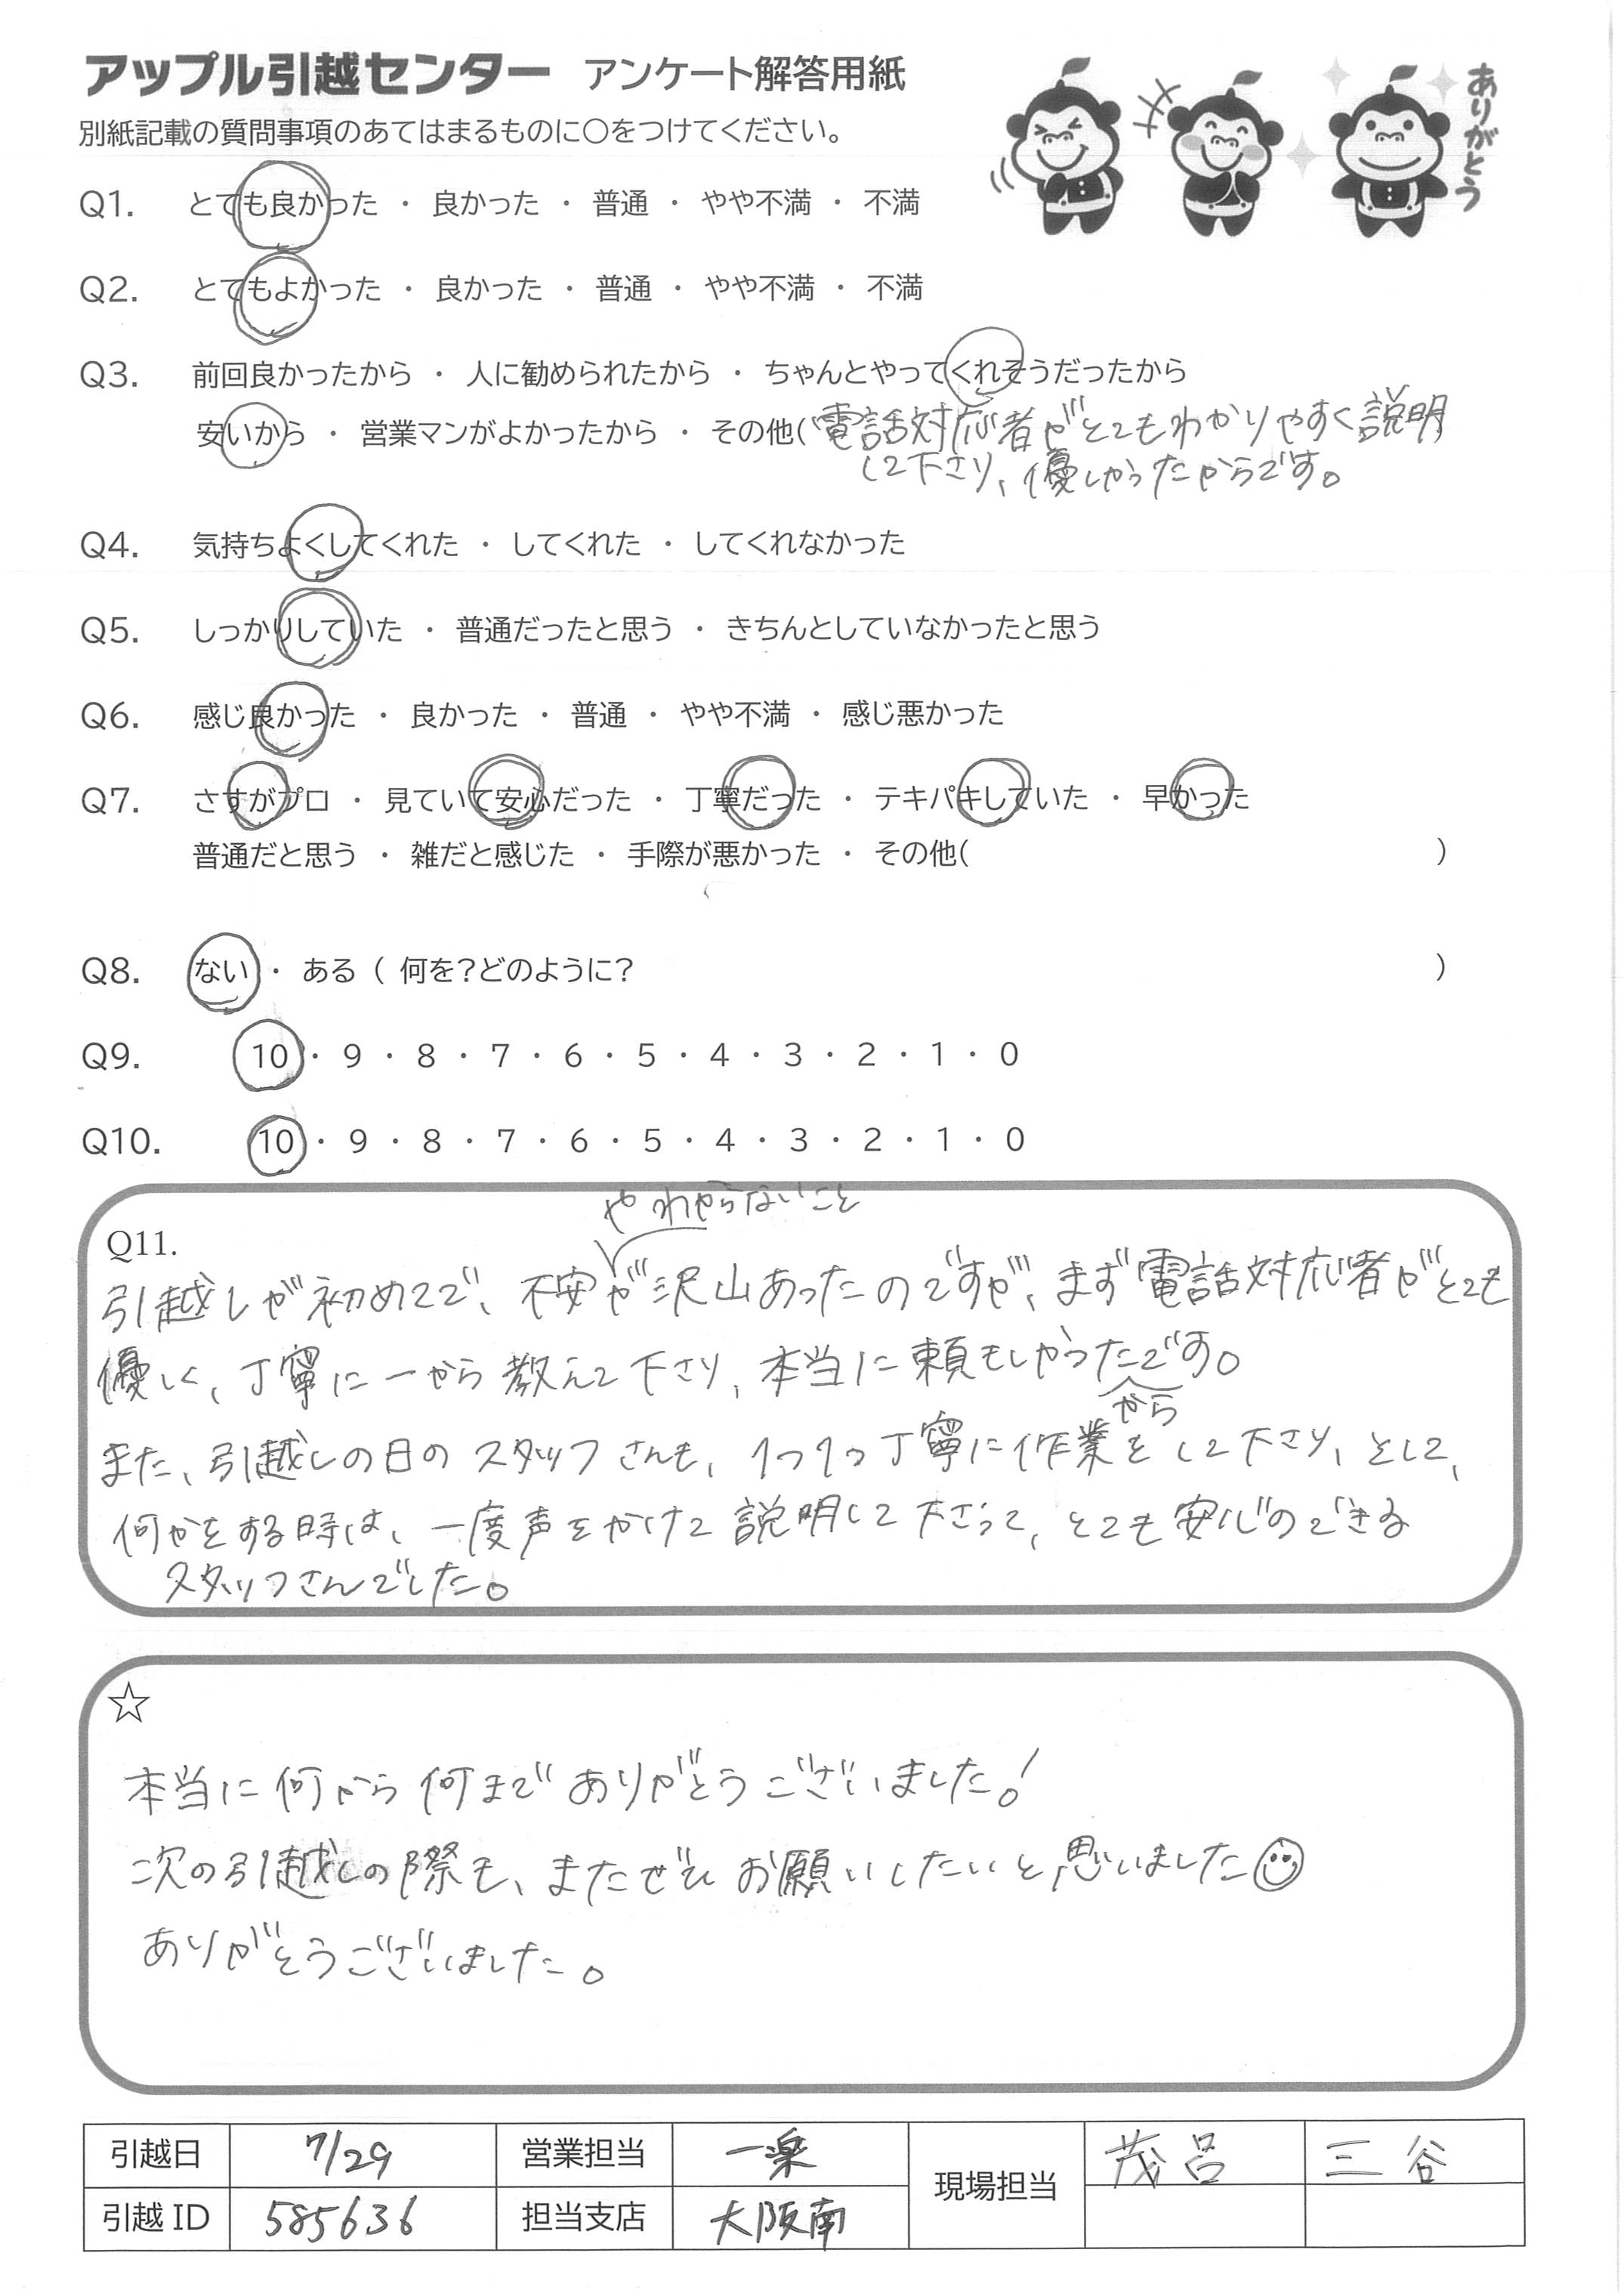 アップル引越センター アンケート解答用紙
ありがとう
別紙記載の質問事項のあてはまるものに○をつけてください。
Q1. とても良かった ・ 良かった ・ 普通 ・ やや不満 ・ 不満
Q2. とてもよかった ・ 良かった ・ 普通 ・ やや不満 ・ 不満
Q3. 前回良かったから ・ 人に勧められたから ・ ちゃんとやってくれそうだったから
安いから ・ 営業マンがよかったから ・ その他( 電話対応者がとてもわかりやすく説明
して下さり、優しかったからです。
Q4. 気持ちよくしてくれた ・ してくれた ・ してくれなかった
Q5. しっかりしていた ・ 普通だったと思う ・ きちんとしていなかったと思う
Q6. 感じ良かった ・ 良かった ・ 普通 ・ やや不満 ・ 感じ悪かった
Q7. さすがプロ ・ 見ていて安心だった ・ 丁寧だった ・ テキパキしていた ・ 早かった
普通だと思う ・ 雑だと感じた ・ 手際が悪かった ・ その他( )
Q8. ない ・ ある ( 何を?どのように? )
Q9. 10 ・ 9 ・ 8 ・ 7 ・ 6 ・ 5 ・ 4 ・ 3 ・ 2 ・ 1 ・ 0
Q10. 10 ・ 9 ・ 8 ・ 7 ・ 6 ・ 5 ・ 4 ・ 3 ・ 2 ・ 1 ・ 0
やわからないこと
Q11.
引越しが初めてで、不安が沢山あったのですが、まず電話対応者がとても
優しく、丁寧に一から教えて下さり、本当に頼もしかったです。
から
また、引越しの日のスタッフさんも、1つ1つ丁寧に作業をして下さり、そして、
何かをする時は、一度声をかけて説明して下さって、とても安心のできる
スタッフさんでした。
☆
本当に何から何までありがとうございました!
次の引越しの際も、またぜひお願いしたいと思いました
ありがとうございました。
引越日 7/29 営業担当 一楽 現場担当 茂呂 三谷
引越ID 585636 担当支店 大阪南